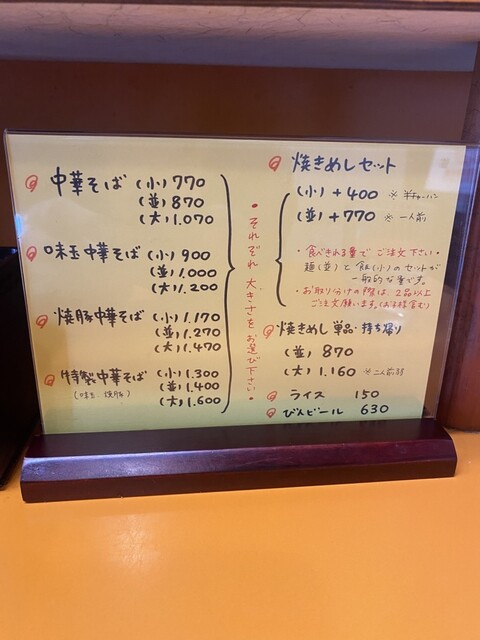 中華そば (小) 770
(並) 870
(大) 1.070
味玉中華そば (小) 900
(並) 1.000
(大) 1.200
焼豚中華そば (小) 1.170
(並) 1.270
(大) 1.470
特製中華そば (小) 1.300
(味玉 焼豚) (並) 1.400
(大) 1.600
・それぞれ大きさをお選び下さい・
焼きめしセット
(小) +400 ※半チャーハン
(並) +770 ※一人前
・食べきれる量でご注文下さい・
麺(並)と飯(小)のセットが
一般的な量です。
・お取り分けの際は、2品以上
ご注文願います。(お子様含む)
焼きめし 単品・持ち帰り
(並) 870
(大) 1.160 ※二人前弱
ライス 150
びんビール 630